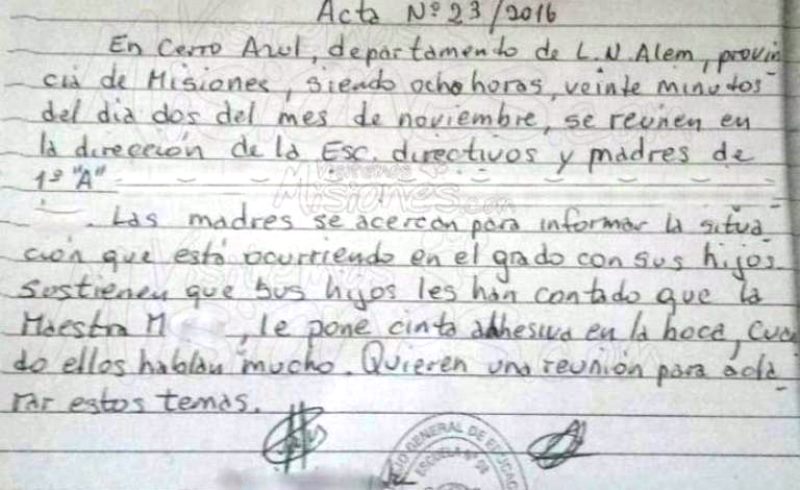 Acta Nº 23/2016
En Cerro Azul, departamento de L.N. Alem, provin
cia de Misiones, siendo ocho horas, veinte minutos
del dia dos del mes de noviembre, se reunen en
la dirección de la Esc. directivos y madres de
1º "A"
Misiones.com
Las madres se acercan para informar la situa
ción que está ocurriendo en el grado con sus hijos.
Sostienen que sus hijos les han contado que la
Maestra M , le pone cinta adhesiva en la boca, cuan
do ellos hablan mucho. Quieren una reunión para acla
rar estos temas.
GENERAL DE EDUCAC
ESCUELA Nº